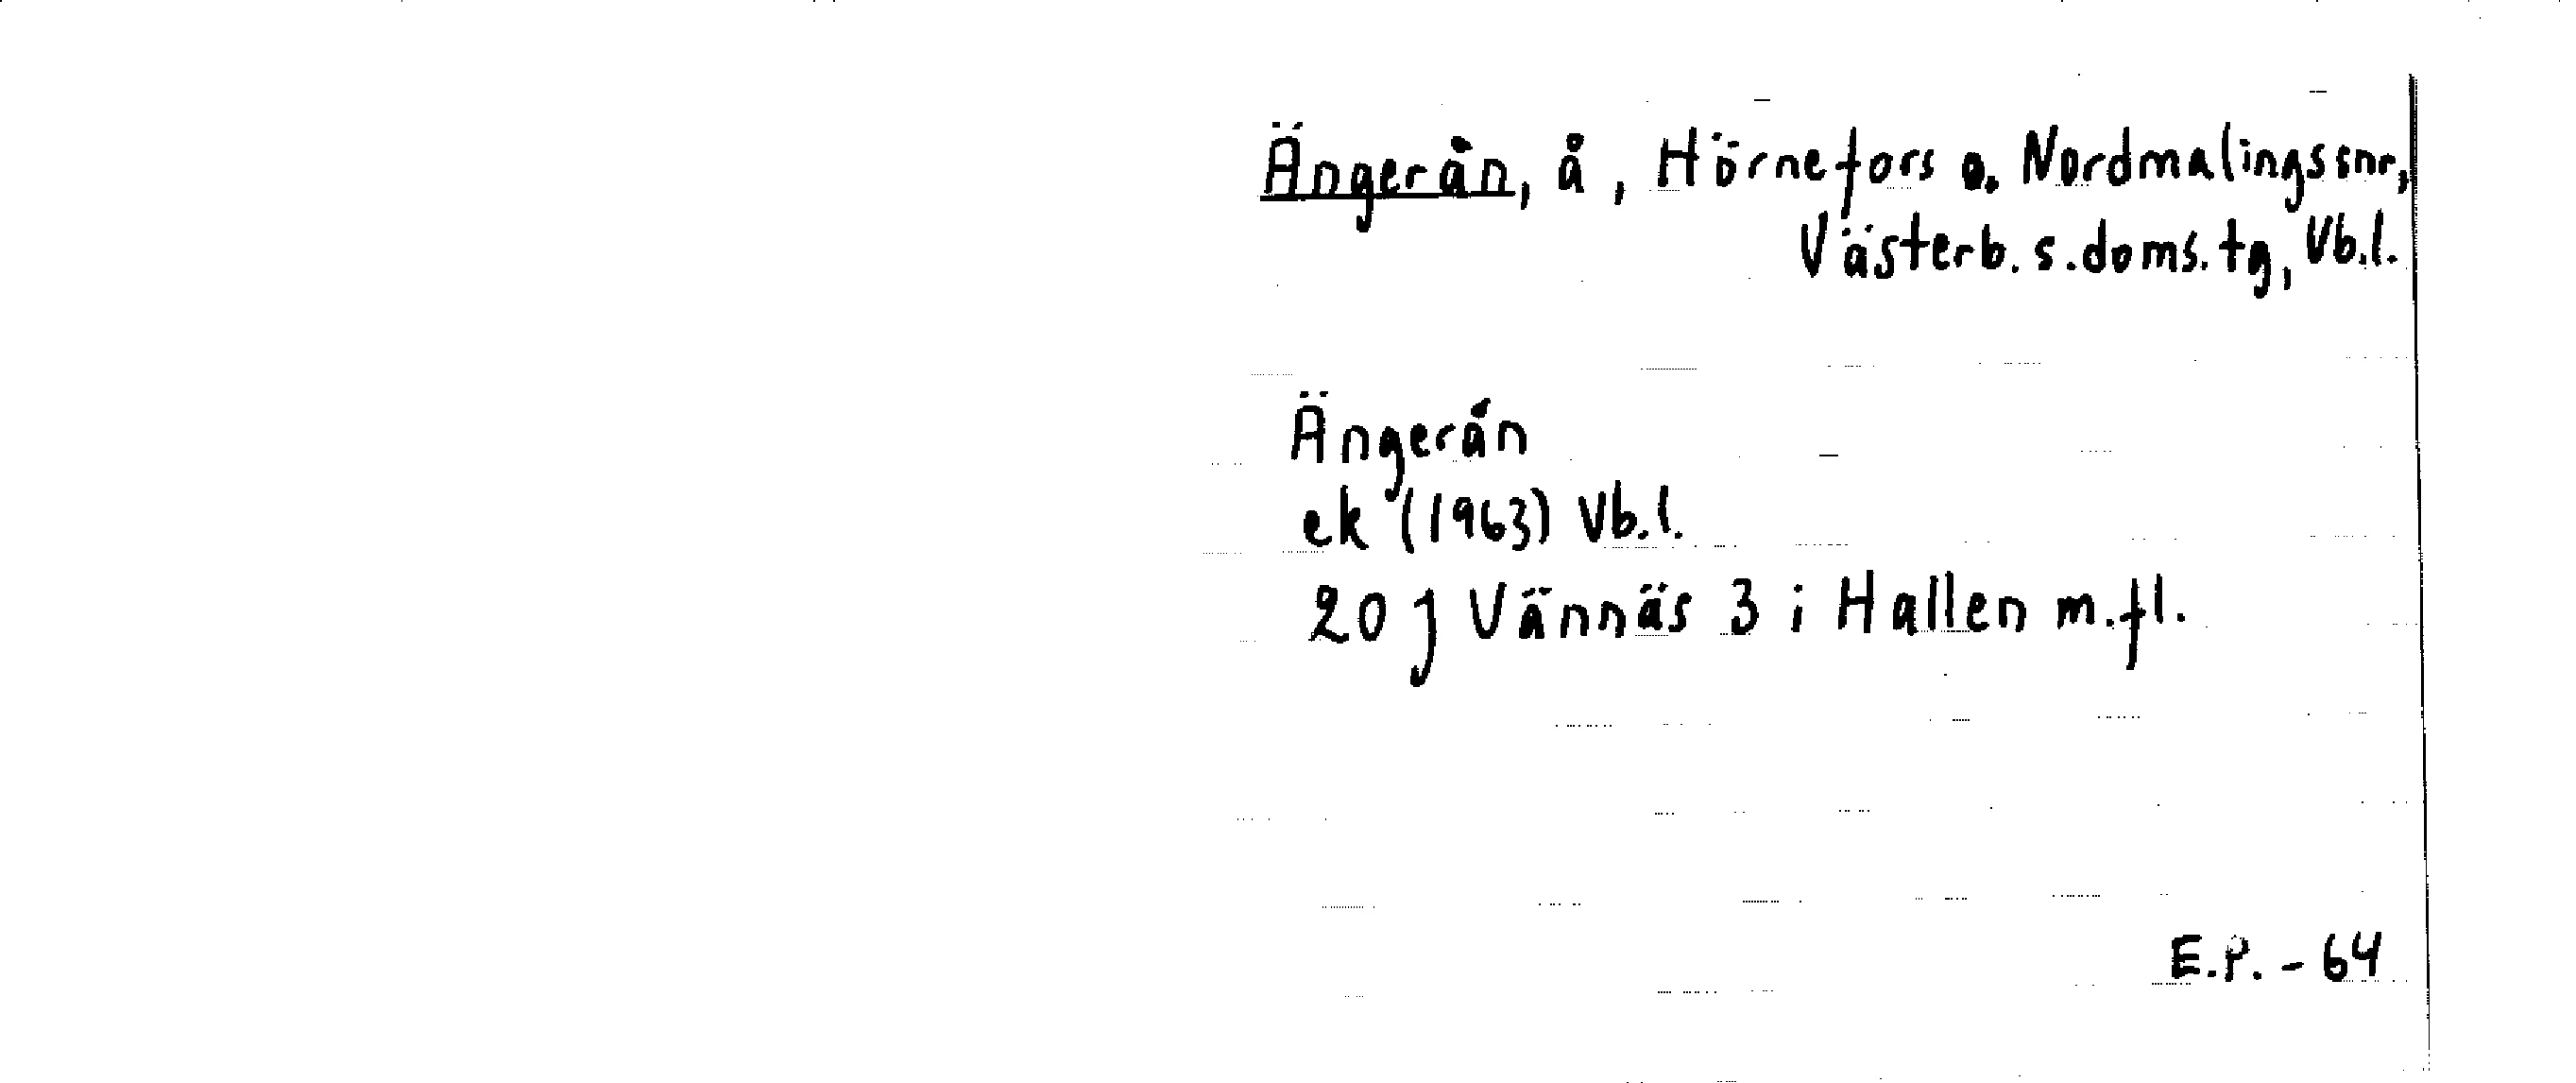 Ängerån, å, Hörnefors o. Nordmalings snr,
Västerb. s. doms. tg, Vb.l.
Ängerån
ek (1963) Vb.l.
20 J Vännäs 3 i Hallen m.fl.
E.P. - 64